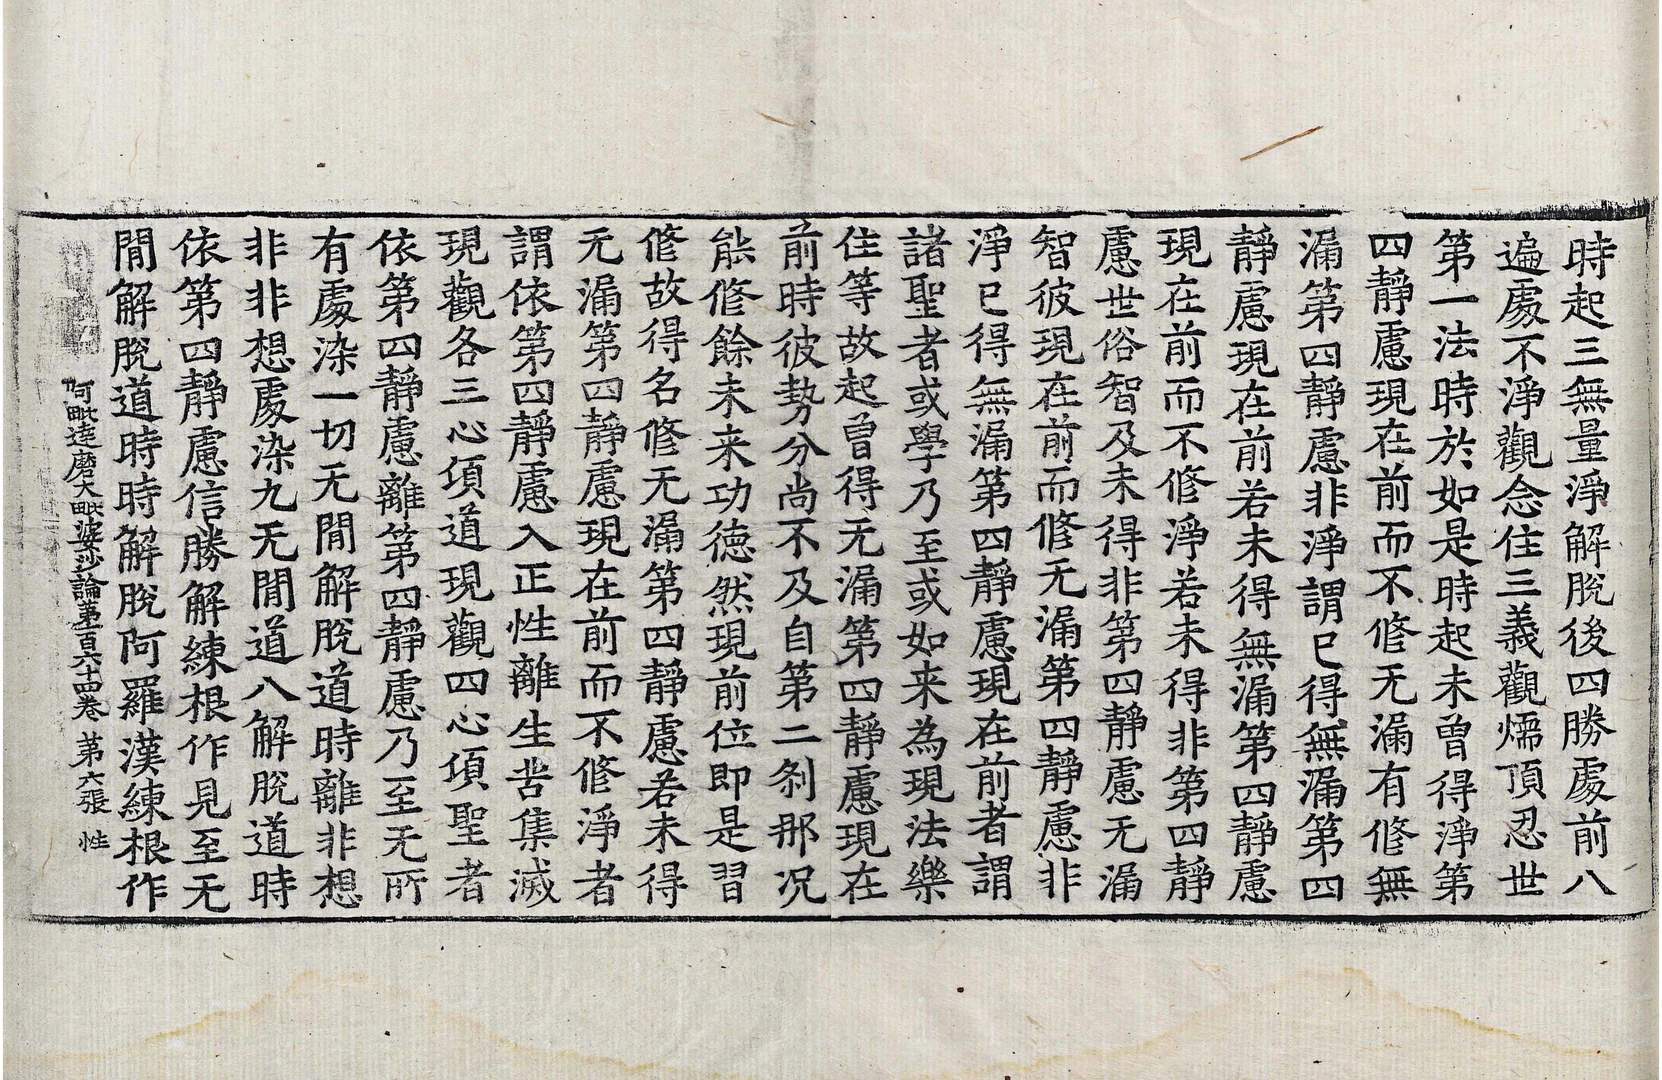 時起三無量淨解脫後四勝處前八
遍處不淨觀念住三義觀煗頂忍世
第一法時於如是時起未曾得淨第
四靜慮現在前而不修无漏有修無
漏第四靜慮非淨謂已得無漏第四
靜慮現在前若未得無漏第四靜慮
現在前而不修淨若未得非第四靜
慮世俗智及未得非第四靜慮无漏
智彼現在前而修无漏第四靜慮非
淨已得無漏第四靜慮現在前者謂
諸聖者或學乃至或如来為現法樂
住等故起曾得无漏第四靜慮現在
前時彼勢分尚不及自第二刹那况
能修餘未来功德然現前位即是習
修故得名修无漏第四靜慮若未得
无漏第四靜慮現在前而不修淨者
謂依第四靜慮入正性離生苦集滅
現觀各三心項道現觀四心項聖者
依第四靜慮離第四靜慮乃至无所
有處染一切无閒解脫道時離非想
非非想處染九无閒道八解脫道時
依第四靜慮信勝解練根作見至无
閒解脫道時時解脫阿羅漢練根作
阿毗達磨大毗婆沙論第一百六十四卷 第六張 性